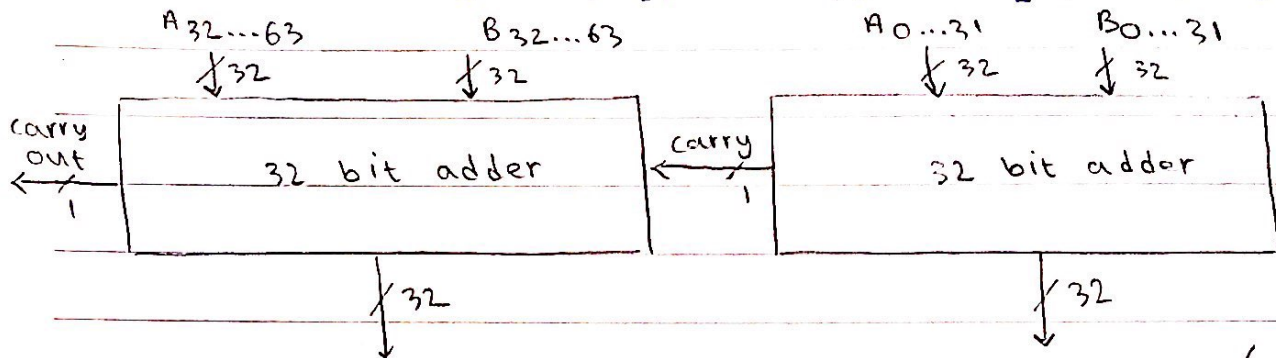 A32...63 B32...63 A0...31 B0...31
32 32 32 32
carry out
1
32 bit adder
carry
1
32 bit addor
32 32